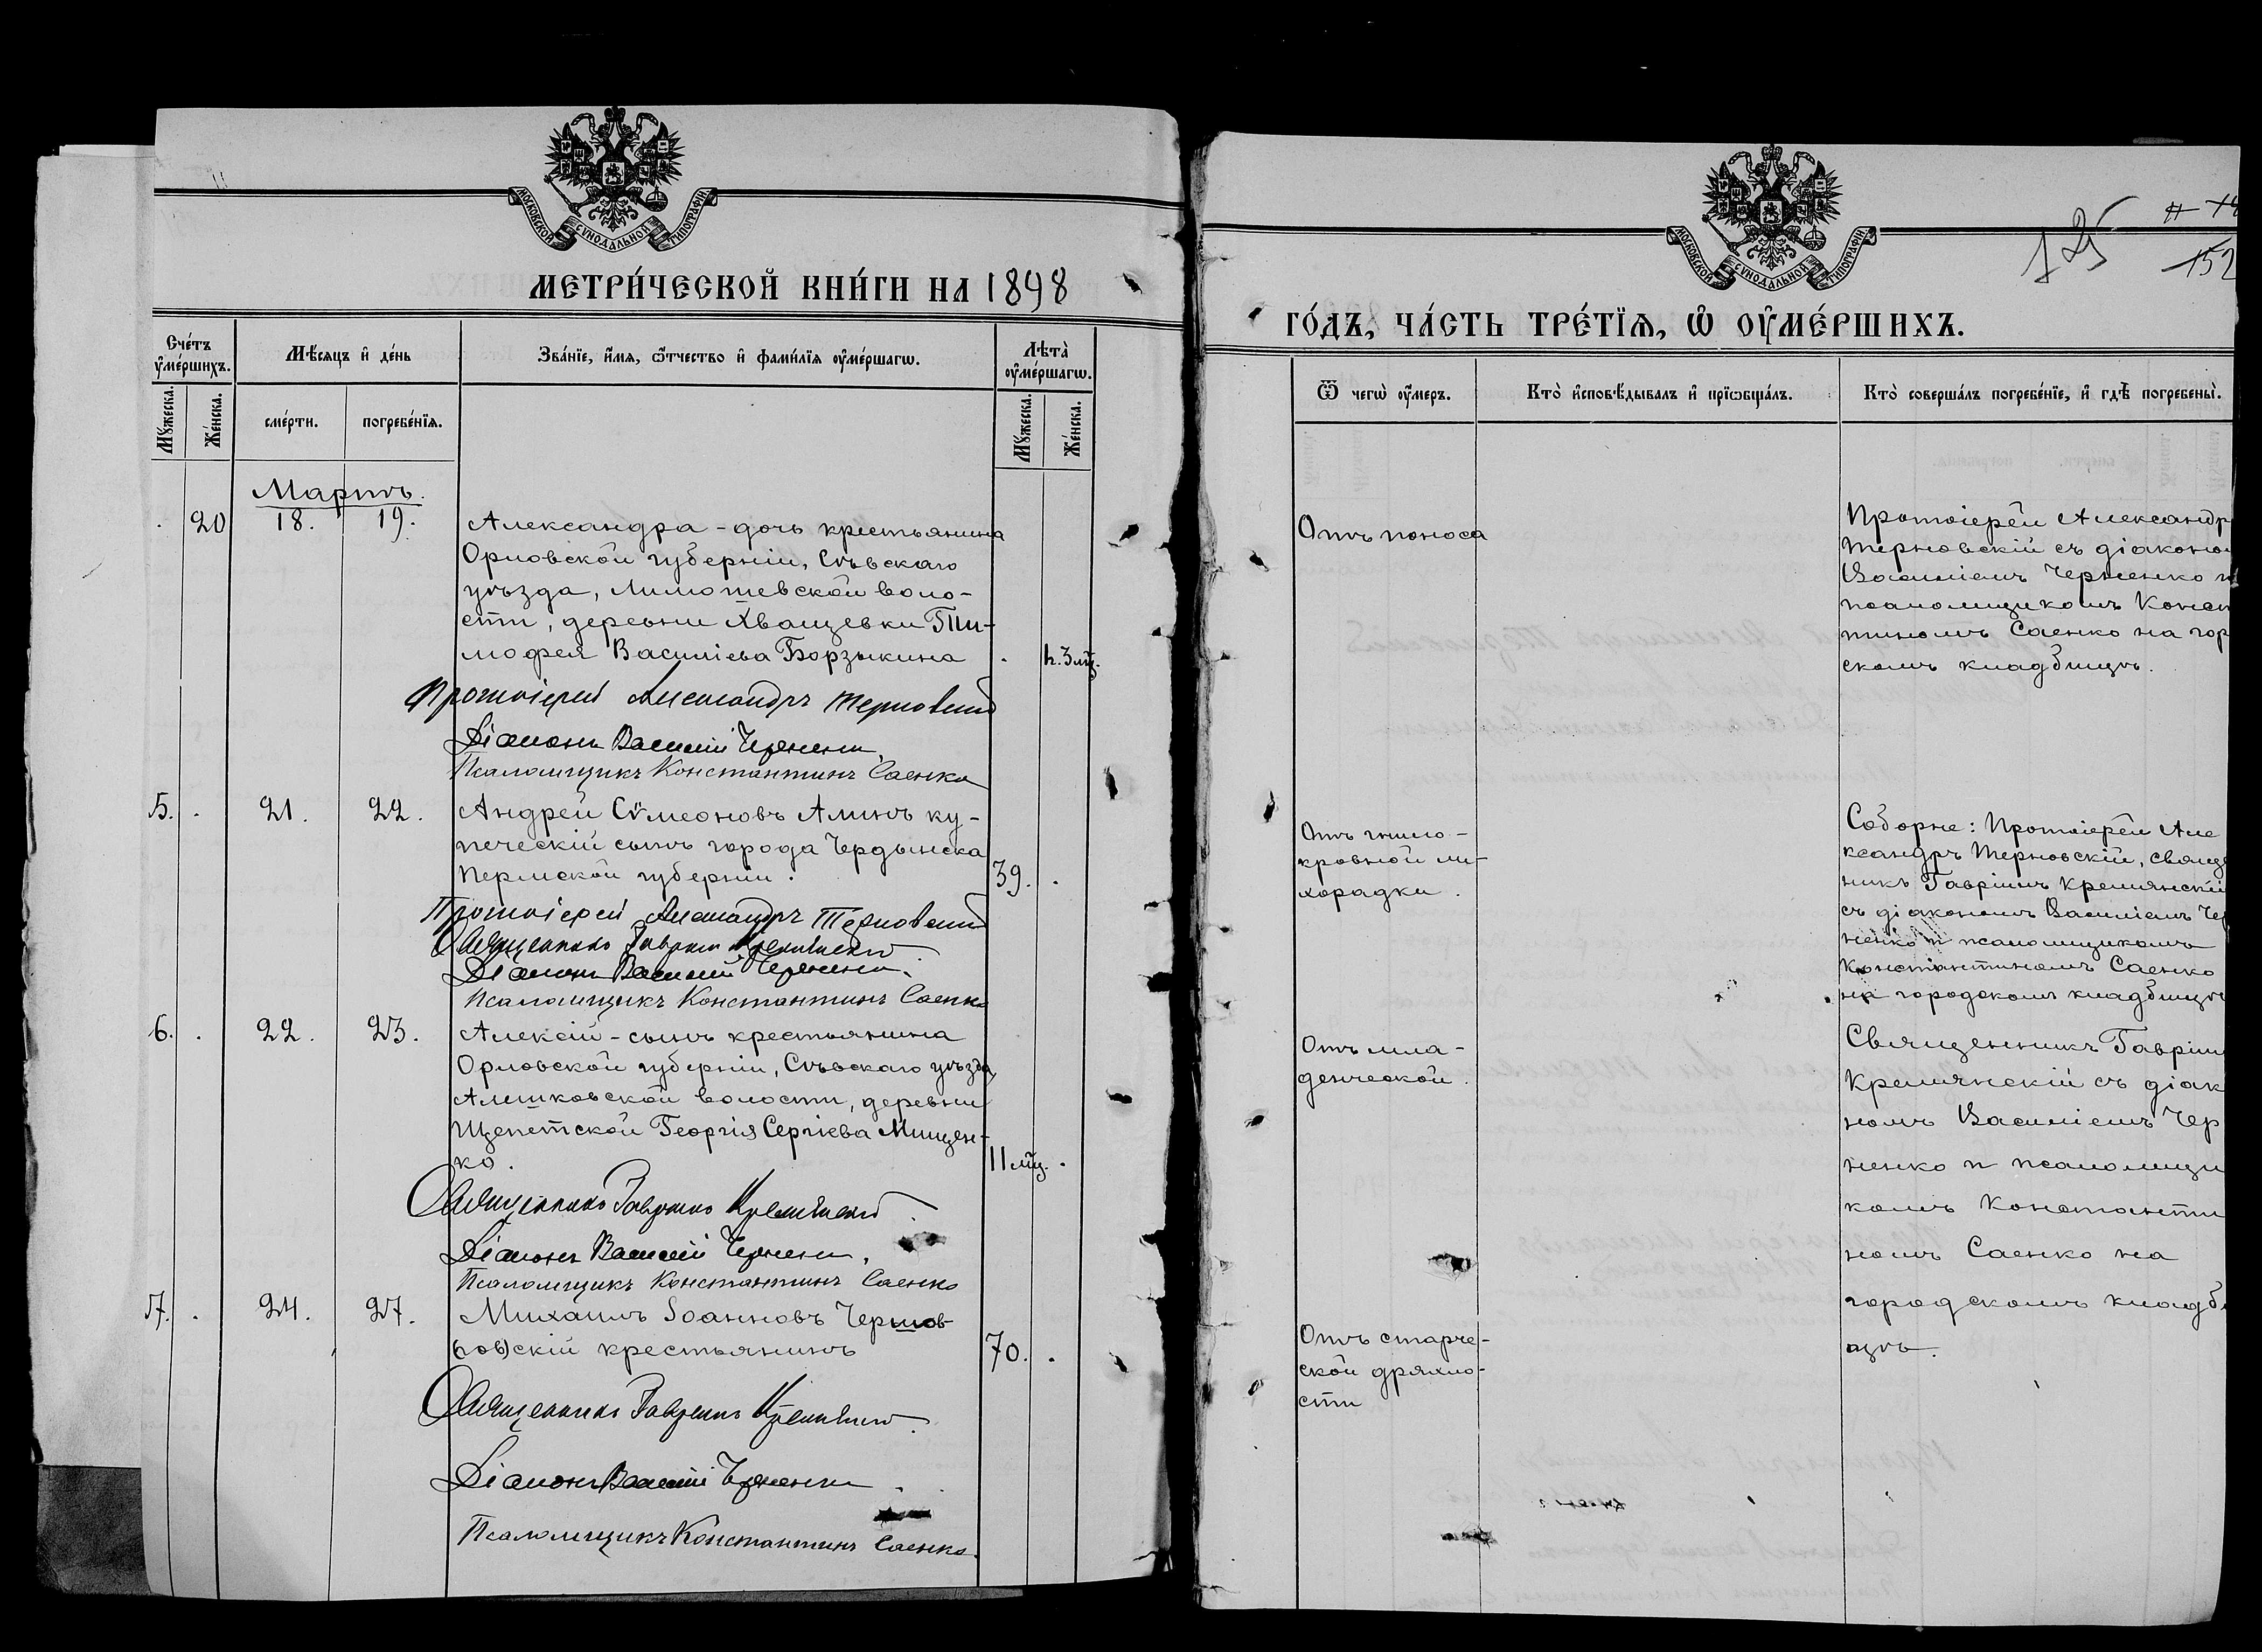 МОСКОВСКОЙ СѴНОДАЛЬНОЙ ТИПОГРАФІИ.
МЕТРИ́ЧЕСКОЙ КНИ́ГИ НА 1898
Сче́тъ ᲂу҆ме́ршихъ.
Мѣ́сяцъ и҆ де́нь
Зва́нїе, и҆́мя, ѻ҆́тчество и҆ фами́лїя ᲂу҆ме́ршагѡ.
Лѣ́та ᲂу҆ме́ршагѡ.
Мꙋ́жеска.
Же́нска.
сме́рти.
погребе́нїя.
Мꙋ́жеска.
Же́нска.
Мартъ.
20 18. 19.
Александра - дочь крестьянина
Орловской губерніи, Сѣвскаго
уѣзда, Лимошевской воло-
сти, деревни Хвощевки Ти-
мофея Василіева Борзыкина
3 мц.
Протоіерей Александръ Терновскій
Діаконъ Василій Черненко
Псаломщикъ Константинъ Саенко
5. 21. 22.
Андрей Сѵмеоновъ Алинъ ку-
печескій сынъ города Чердынска
Пермской губерніи. 39.
Протоіерей Александръ Терновскій
Священникъ Гавріилъ Кремянскій
Діаконъ Василій Черненко.
Псаломщикъ Константинъ Саенко
6. 22. 23.
Алексій - сынъ крестьянина
Орловской губерніи, Сѣвскаго уѣзда,
Алешковской волости, деревни
Щепетской Георгія Сергіева Мищен-
ко. 11 мц.
Священникъ Гавріилъ Кремянскій
Діаконъ Василій Черненко.
Псаломщикъ Константинъ Саенко
7. 24. 27.
Михаилъ Іоанновъ Чернов-
(нов)скій крестьянинъ 70.
Священникъ Гавріилъ Кремянскій.
Діаконъ Василій Черненко
Псаломщикъ Константинъ Саенко.
МОСКОВСКОЙ СѴНОДАЛЬНОЙ ТИПОГРАФІИ.
125
152
ГО́ДЪ, ЧА́СТЬ ТРЕ́ТЇѦ, Ѽ ОУ҆МЕ́РШИХЪ.
Ѿ чегѡ̀ ᲂу҆́меръ.
Кто̀ и҆сповѣ́дывалъ и҆ прїѡбща́лъ.
Кто̀ соверша́лъ погребе́нїе, и҆ гдѣ̀ погребены̀.
Отъ поноса
Протоіерей Александр
Терновскій съ діаконо
Василіемъ Черненко и
псаломщикомъ Конст
тиномъ Саенко на гор
скомъ кладбищѣ.
Отъ гнило-
кровной ли-
хорадки.
Соборне: Протоіерей Але
ксандръ Терновскій, священ
никъ Гавріилъ Кремянскій
съ діакономъ Василіемъ Чер
ненко и псаломщикомъ
Константиномъ Саенко
на городскомъ кладбищѣ
Отъ мла-
денческой.
Священникъ Гавріил
Кремянскій съ діак
номъ Василіемъ Чер
ненко и псаломщи
комъ Константи
номъ Саенко на
городскомъ кладби
щѣ.
Отъ старче-
ской дряхло-
сти